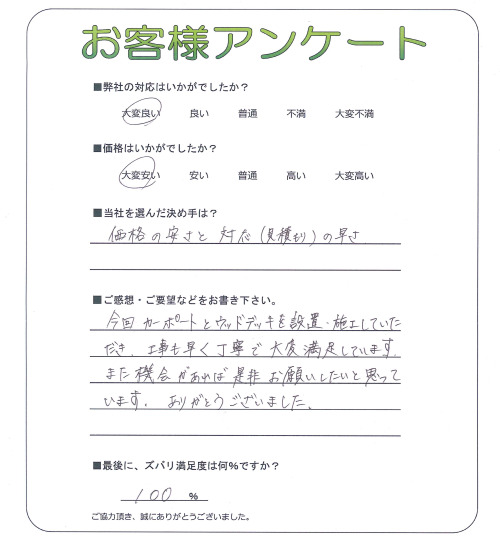 お客様アンケート
■弊社の対応はいかがでしたか？
大変良い 良い 普通 不満 大変不満
■価格はいかがでしたか？
大変安い 安い 普通 高い 大変高い
■当社を選んだ決め手は？
価格の安さと対応(見積もり)の早さ
■ご感想・ご要望などをお書き下さい。
今回カーポートとウッドデッキを設置・施工していた
だき、工事も早く丁寧で大変満足しています。
また機会があれば是非お願いしたいと思って
います。ありがとうございました。
■最後に、ズバリ満足度は何%ですか？
100 %
ご協力頂き、誠にありがとうございました。